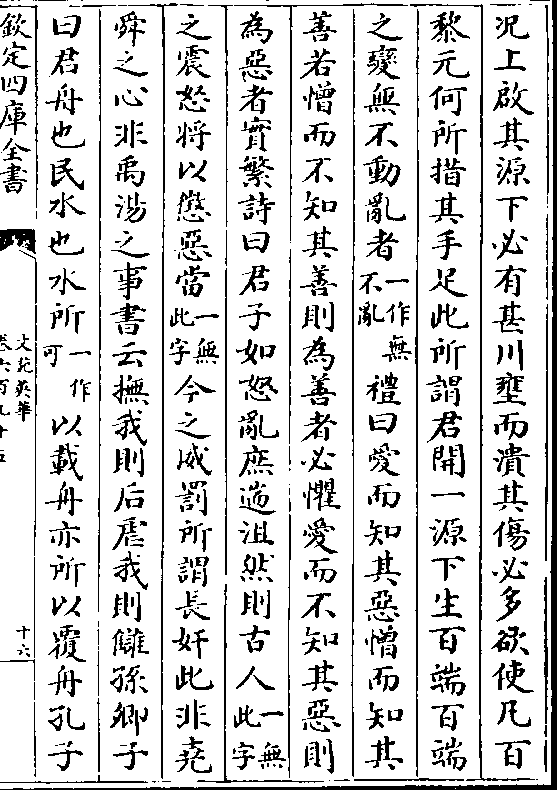 况上啟其源下必有甚川壅而潰其傷必多欲使凡百
黎元何所措其手足此所謂君開一源下生百端百端
之變無不動亂者一作無不亂禮曰愛而知其惡憎而知其
善若憎而不知其善則為善者必懼愛而不知其惡則
為惡者實繁詩曰君子如怒亂庶遄沮然則古人一無此字
之震怒將以懲惡當一無此字今之威罰所謂長奸此非堯
舜之心非禹湯之事書云撫我則后虐我則讎孫卿子
曰君舟也民水也水所一作可以載舟亦所以覆舟孔子
欽定四庫全書
文苑英華
卷六百九十五
十六